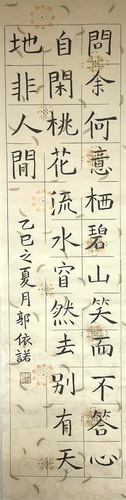 問余何意栖碧山笑而不答心
自閑桃花流水窅然去别有天
地非人間
乙巳之夏月郭依諾